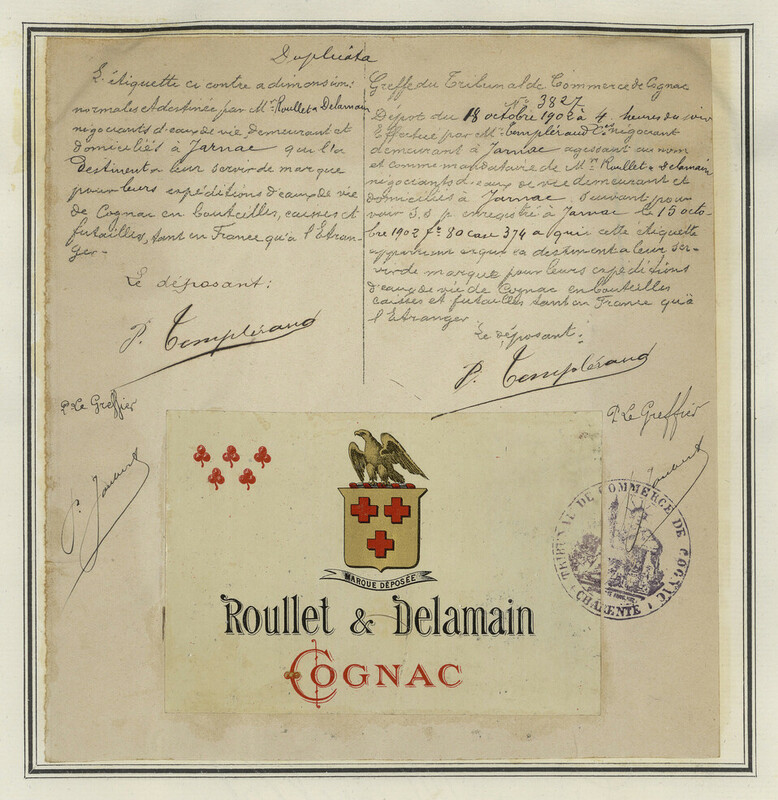 Duplicata
L'étiquette ci contre a dimensions
normales est destinée par Mrs Roullet & Delamain
négociants d'eaux de vie, demeurant et
domiciliés à Jarnac qui la
destinent à leur servir de marque
pour leurs expéditions d'eaux de vie
de Cognac en bouteilles, caisses et
futailles, tant en France qu'à l'Etran-
ger.-
Le déposant:
P. Templéraud
P. Le Greffier
P. Jouaud
Greffe du Tribunal de Commerce de Cognac
No 3827
Dépôt du 18 octobre 1902 à 4 heures du soir
Effectué par Mr Templéraud négociant
demeurant à Jarnac agissant au nom
et comme mandataire de Mrs Roullet & Delamain
négociants d'eaux de vie demeurant et
domiciliés à Jarnac suivant pou-
voir S.S.P. enregistré à Jarnac le 15 octo-
bre 1902 fo 80 case 374 a qui cette étiquette
appartient et qui la destinent a leur ser-
vir de marque pour leurs expéditions
d'eaux de vie de Cognac en bouteilles
caisses et futailles tant en France qu'à
l'Etranger
Le déposant:
P. Templéraud
P. Le Greffier
Jouaud
TRIBUNAL DE COMMERCE DE COGNAC
(CHARENTE)
MARQUE DÉPOSÉE
Roullet & Delamain
COGNAC